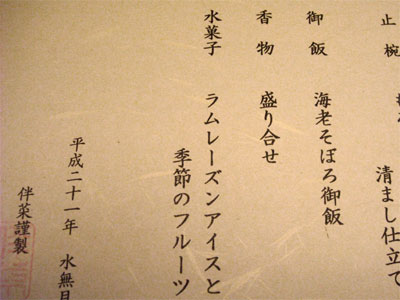 止椀 清まし仕立て
御飯 海老そぼろ御飯
香物 盛り合せ
水菓子 ラムレーズンアイスと
季節のフルーツ
平成二十一年 水無月
伴菜謹製